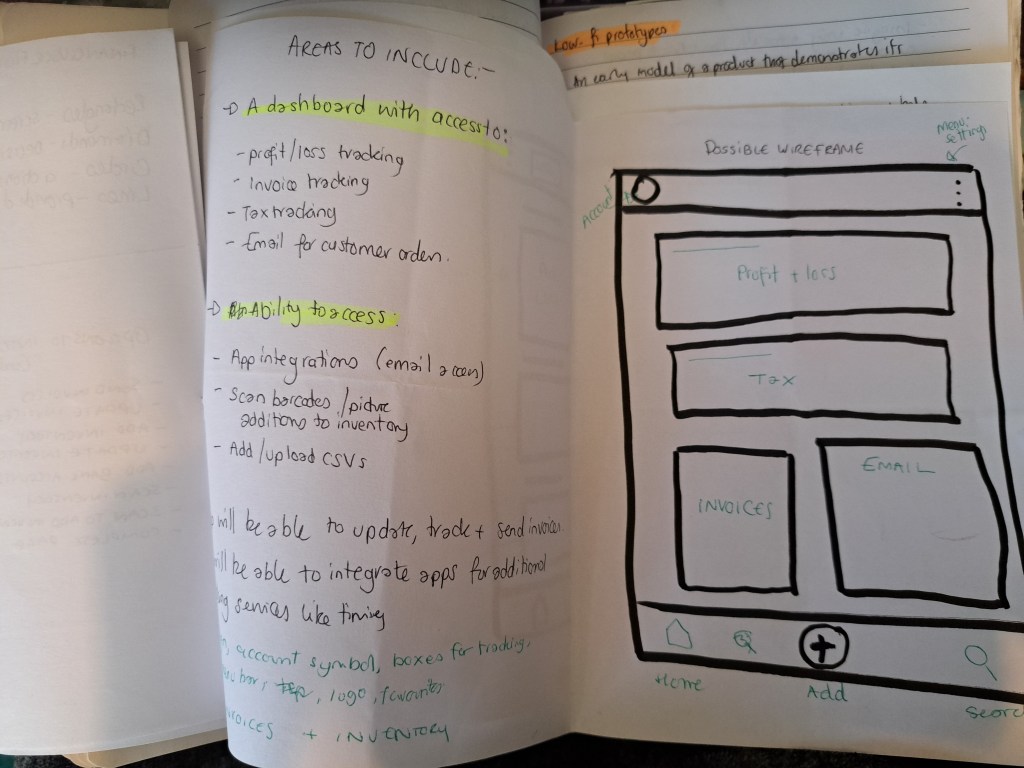 AREAS TO INCLUDE:-
→ A dashboard with access to:
- profit/loss tracking
- Invoice tracking
- Tax tracking
- Email for customer orders.
→ Ability to access:
- App integrations (email access)
- Scan barcodes/picture
additions to inventory
- Add/upload CSVs
will be able to update, track + send invoices
will be able to integrate apps for additional
services like timing
account symbol, boxes for tracking,
bar, logo, favourites
INVOICES + INVENTORY
Low-fi prototypes
An early model of a product that demonstrates its
POSSIBLE WIREFRAME
menu:
settings
Account
Profit + loss
Tax
INVOICES
EMAIL
Home
Add
Search